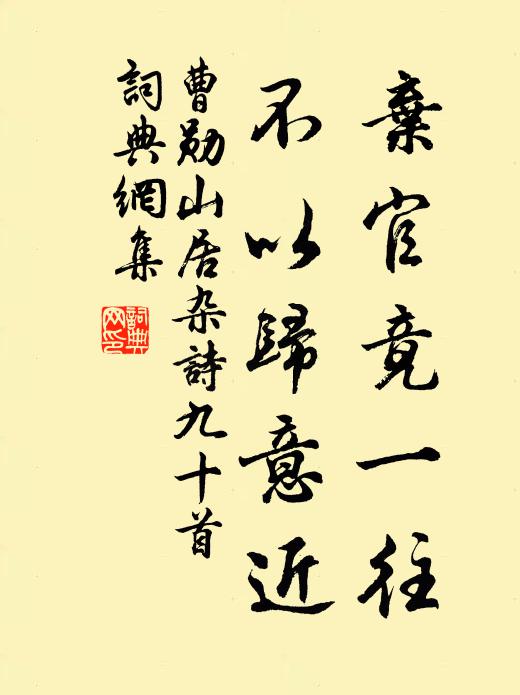 棄官竟一往
不以歸意近
曹勛山居杂詩九十首
詞典網集
詞典
网印